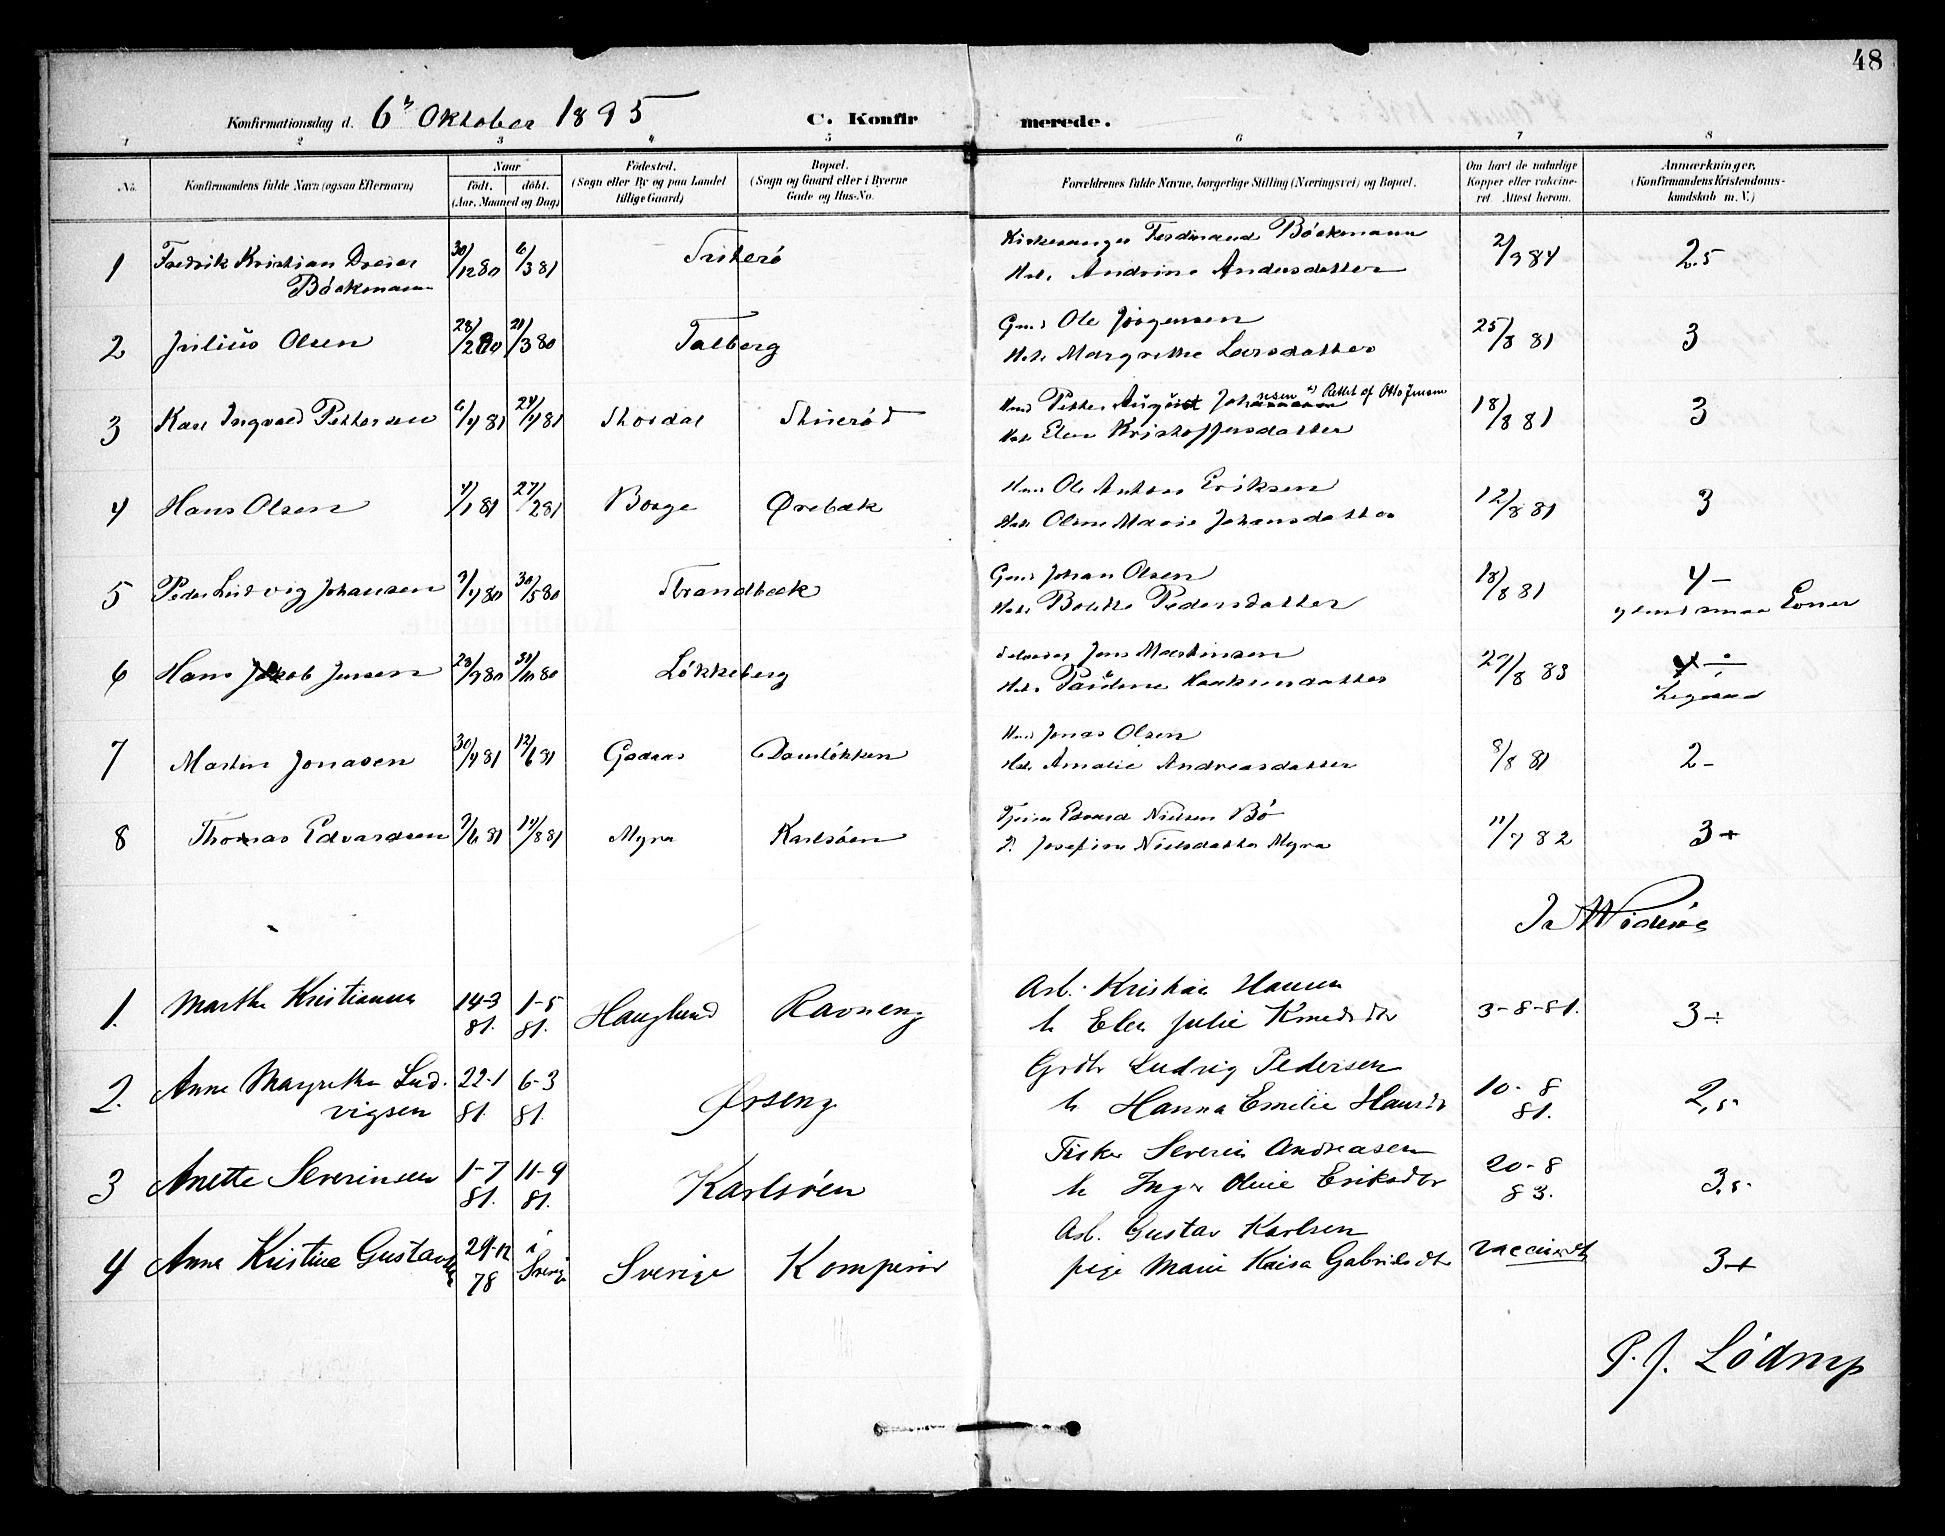 48
Konfirmationsdag d. 6te Oktober 1895 C. Konfirmerede.
1 2 3 4 5 6 7 8
No. Konfirmandens fulde Navn (ogsaa Efternavn) Naar født. døbt. (Aar, Maaned og Dag) Fødested. (Sogn eller By og paa Landet tillige Gaard) Bopæl. (Sogn og Gaard eller i Byerne Gade og Hus-No. Forældrenes fulde Navne, borgerlige Stilling (Næringsvei) og Bopæl. Om havt de naturlige Kopper eller vakcineret. Attest herom. Anmærkninger. (Konfirmandens Kristendomskundskab m. V.)
1 Fredrik Kristian Dreier 30/12 80 6/3 81 Kirkesanger Ferdinand Böckmann 2/3 84 2.5
Böckmann Andrine Andersdatter
2 Julius Olsen 28/2 80 21/3 80 Talberg Gmd Ole Jörgensen 25/8 81 3
Margrethe Larsdatter
3 Karl Ingvald Pettersen 6/4 81 24/4 81 Petter August Johansen Rettet af Otto Jensen 18/8 81 3
Elen Kristoffersdatter
4 Hans Olsen 4/1 81 27/2 81 Borge Ørebæk Ole Anton Eriksen 12/8 81 3
Oline Marie Johansdatter
5 Peder Ludvig Johansen 9/4 80 30/5 80 Strandbæk Gmd Johan Olsen 18/8 81 4-
Pedersdatter smaa Evner
6 Hans Jakob Jensen 28/9 80 31/10 80 Løkkeberg Jens Martinsen 27/8 83 4 ÷
Haakensdatter Ligesaa
7 Martin Jonasen 30/4 81 12/6 81 Damløkken Jonas Olsen 8/8 81 2-
Amalie Andreasdatter
8 Thomas Edvardsen 7/6 81 14/8 81 Myra Karlsöen Edvard Nielsen Bö 11/7 82 3+
P. Josefine Nielsdatter Myra
1. Marthe Kristiansen 14-3 81. 1-5 81. Hauglund Ravneng Arb. Kristian Hansen 3-8-81. 3÷
h Elen Julie Knudsdtr
2. Anne Margrethe Lud- 22-1 81. 6-3 81. Ørseng Grdbr Ludvig Pedersen 10-8 81. 2,5
vigsen h Hanna Emilie Hansdtr
3 Anette Severinsen 1-7 81. 11-9 81. Karlsöen Fisker Severin Andreasen 20-8 83. 3,5
h Inger Olivie Eriksdtr
4 Anna Kristine Gustavsen 29-12 78 i Sverige Sverige Arb. Gustav Karlsen 3+
pige Marie Kaisa Gabrielsdtr
P. J. Lödrup